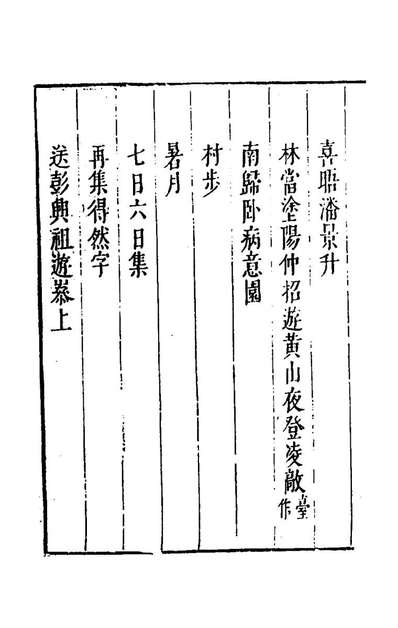 喜晤潘景升
林當塗陽仲招遊黃山夜登凌歊臺作
南歸卧病意園
村步
暑月
七日六日集
再集得然字
送彭興祖遊泰上